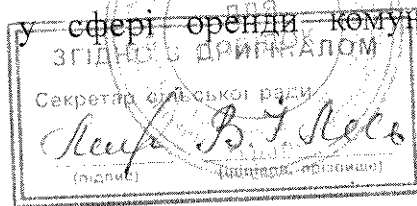 у сфері оренди комун
для
ЗГІДНО З ОРИГІНАЛОМ
Секретар сільської ради
В. І.
(підпис) (ініціали, прізвище)